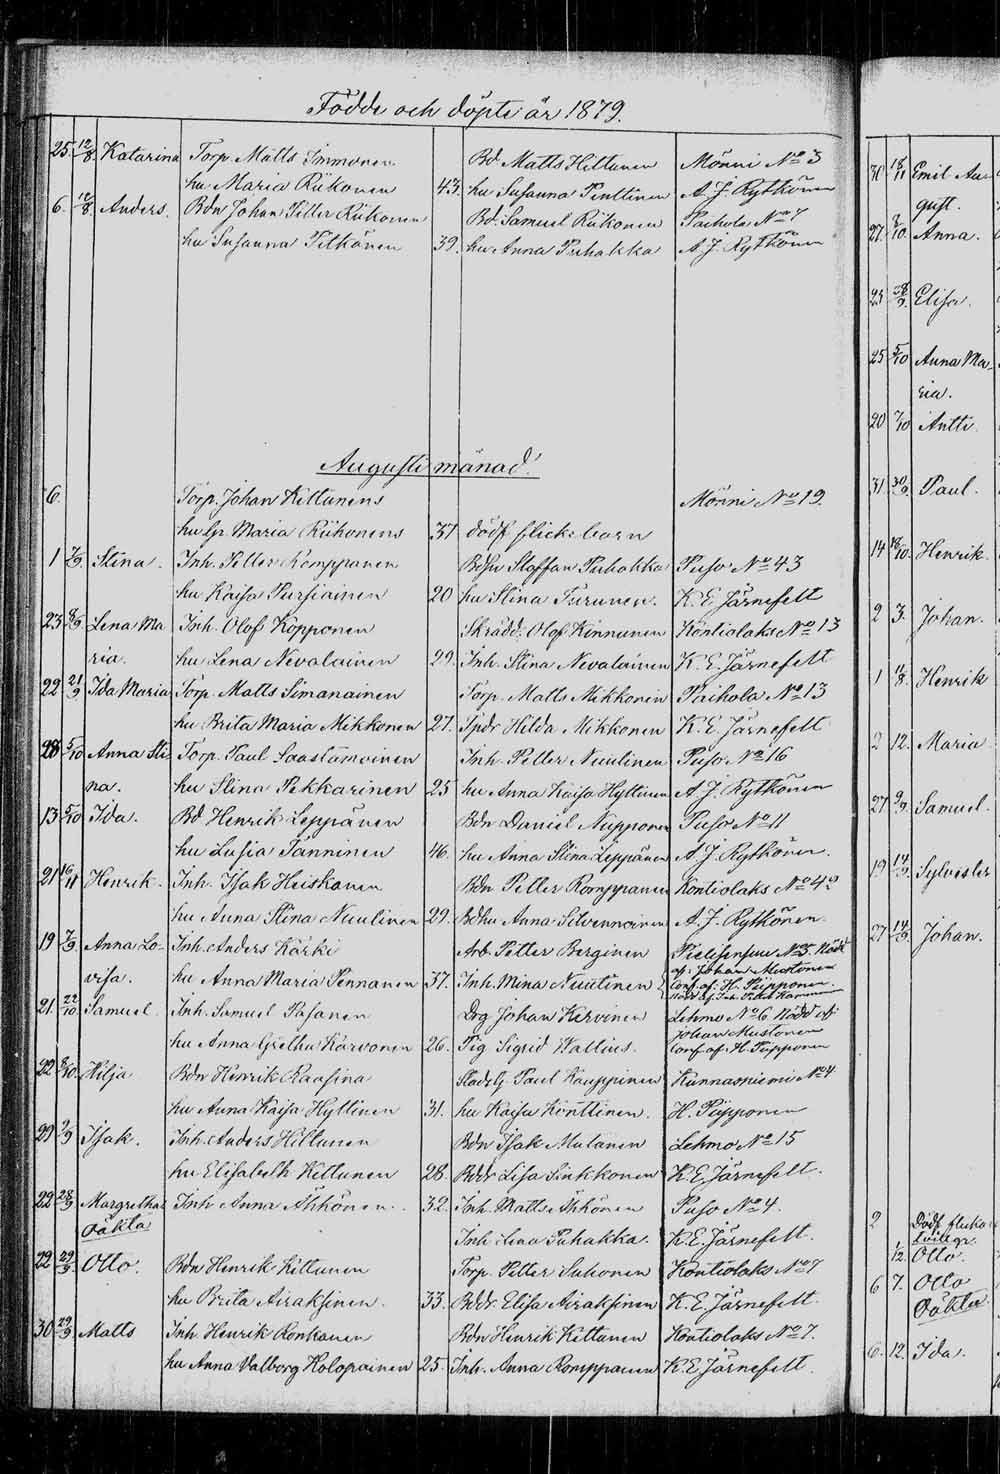 Födde och döpte år 1879.
25. 12/8. Katarina Torp. Matts Immonen Bd. Matts Hiltunen Mönni No 3
hu Maria Riikonen 43. hu Susanna Penttinen A. J. Rytkönen
6. 12/8. Anders. Bdn Johan Petter Riikonen Bd. Samuel Riikonen Paihola No 7
hu Susanna Pitkänen 39. hu Anna Puhakka A. J. Rytkönen
Augusti månad!
6. Torp. Johan Kittunens Mönni No 19.
hu Maria Riikonens 37 dödf flickebarn
1 7/9. Stina. Inh. Petter Romppanen Bdhn Staffan Puhakka Puso No 43
hu Kaisa Pursiainen 20 hu Stina Turunen. K. E. Järnefelt
23 8/9. Lena Ma Inh. Olof Kopponen Skrädd. Olof Kinnunen Kontiolaks No 13
ria. hu Lena Nevalainen 29. Inh. Stina Nevalainen K. E. Järnefelt
22 21/9 Ida Maria Torp. Matts Simanainen Torp. Matts Mikkonen Paihola No 13
hu Brita Maria Mikkonen 27. Tpdr Hilda Mikkonen K. E. Järnefelt
28 5/10 Anna Sti- Torp. Paul Saastamoinen Inh. Petter Nuutinen Puso No 16
na. hu Stina Pekkarinen 25 hu Anna Kaisa Hyttinen A. J. Rytkönen
13 5/10 Ida. Bd Henrik Leppänen Bdn Daniel Nupponen Puso No 11
hu Lusia Tanninen 46. hu Anna Stina Leppänen A. J. Rytkönen.
21 16/11 Henrik. Inh. Isak Heiskanen Bdn Petter Romppanen Kontiolaks No 4
hu Anna Stina Nuutinen 29. Bdhu Anna Silvennoinen A. J. Rytkönen
19 7/9 Anna Lo- Inh. Anders Kärki Arb. Petter Berginen Pielisensuu No 5. Nödd
visa. hu Anna Maria Pennanen 37. Inh. Mina Nuutinen af: Johan Mustonen
Conf. af: H. Piipponen.
21. 22/10. Samuel. Inh. Samuel Pesonen Drg Johan Kervinen Lehmo No 6 Nödd af:
Johan Mustonen
hu Anna Gretha Karvonen 26. Pig Sigrid Wallius. Conf. af: H. Piipponen
22 8/10. Hilja Bdn Henrik Raasina Paul Kauppinen Kunnasniemi No 4
hu Anna Kaisa Hyttinen 31. hu Kaisa Konttinen. H. Piipponen
29 7/9 Isak. Inh. Anders Hiltunen Bdn Isak Mutanen Lehmo No 15
hu Elisabeth Kettunen 28. Bddr Lisa Sinkkonen K. E. Järnefelt.
22 28/9 Margretha Inh Anna Ahhönen. 32. Inh. Matts Ahhönen Puso No 4.
Oäkta Inh Lena Puhakka. K. E. Järnefelt.
22 29/9. Otto. Bdn Henrik Kittunen Torp. Petter Suhonen Kontiolaks No 7
hu Brita Airaksinen. 33. Bddr. Elisa Airaksinen K. E. Järnefelt.
30 29/9 Matts Inh Henrik Ronkanen Bdn Henrik Kettunen Kontiolaks No 7.
hu Anna Valborg Holopainen 25. Inh. Anna Romppanen K. E. Järnefelt
30 18/11 Emil Au-
gust.
27. /10. Anna.
25 28/9. Elisa.
25 5/10 Anna Ma-
ria.
20 7/10 Antti.
31 30/9. Paul.
14 18/10. Henrik.
2 3. Johan.
1 11/8. Henrik
2 12. Maria
27 9/9. Samuel.
19 14/9. Sylvester
27 14/9. Johan.
2 Dödf.
1/12. Otto.
6 7. Otto
Oäkta
6. 12. Ida.